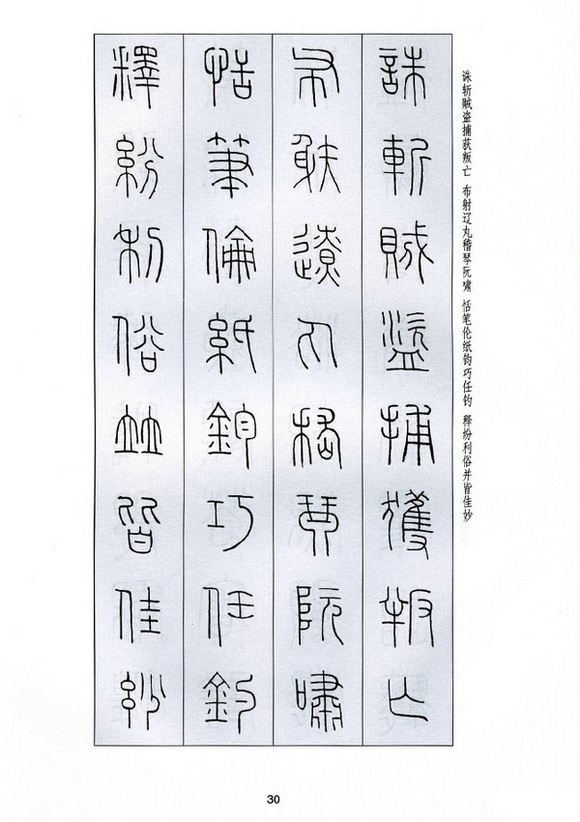 诛斩贼盗捕获叛亡 布射辽丸嵇琴阮啸 恬笔伦纸钧巧任钓 释纷利俗并皆佳妙
誅斬賊盜捕獲叛亡
布射遼丸嵇琴阮嘯
恬筆倫紙鈞巧任釣
釋紛利俗並皆佳紗
30